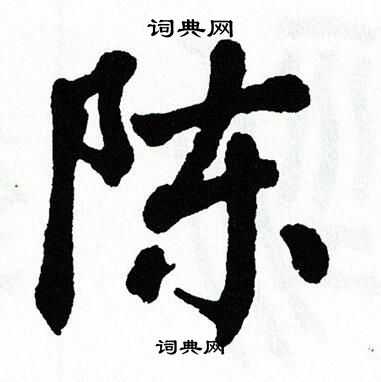 词典网
陈
词典网